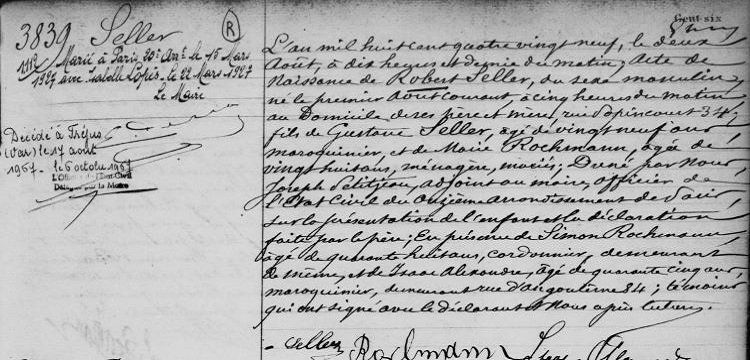 Cent-six
3839 Seller
R
1112
Marié à Paris 20e Arrt le 15 Mars
1927 avec Isabelle Lopès le 22 Mars 1927
Le Maire
Décédé à Fréjus
(Var) le 17 août
1967. le 6 octobre 1967
L'Officier de l'Etat-Civil
Délégué par le Maire
L'an mil huit cent quatre vingt neuf, le deux
Août, à dix heures et demie du matin; Acte de
Naissance de Robert Seller, du sexe masculin,
né le premier Août courant, à cinq heures du matin
au Domicile de ses père et mère, rue Popincourt 34;
fils de Gustave Seller, âgé de vingt neuf ans,
maroquinier, et de Marie Rochmann, âgée de
vingt huit ans, ménagère, mariés; Dressé par Nous
Joseph Petitjean, adjoint au maire, officier de
l'Etat Civil du Onzième arrondissement de Paris,
sur la présentation de l'enfant et la déclaration
faite par le père; En présence de Simon Rochmann,
âgé de quarante huit ans, cordonnier, demeurant
de même, et de Isaac Alexandre, âgé de quarante cinq ans,
maroquinier, demeurant rue d'angoulême 84; témoins
qui ont signé avec le déclarant et Nous après lecture.
Seller Rochmann